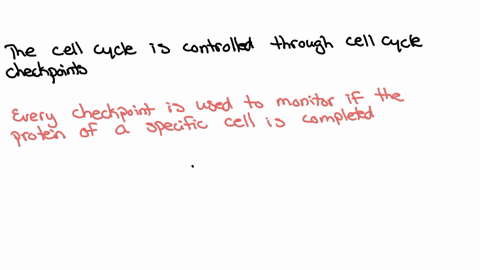 The cell cycle is controlled through cell cycle
checkpoints
Every checkpoint is used to monitor if the
protein of a specific cell is completed